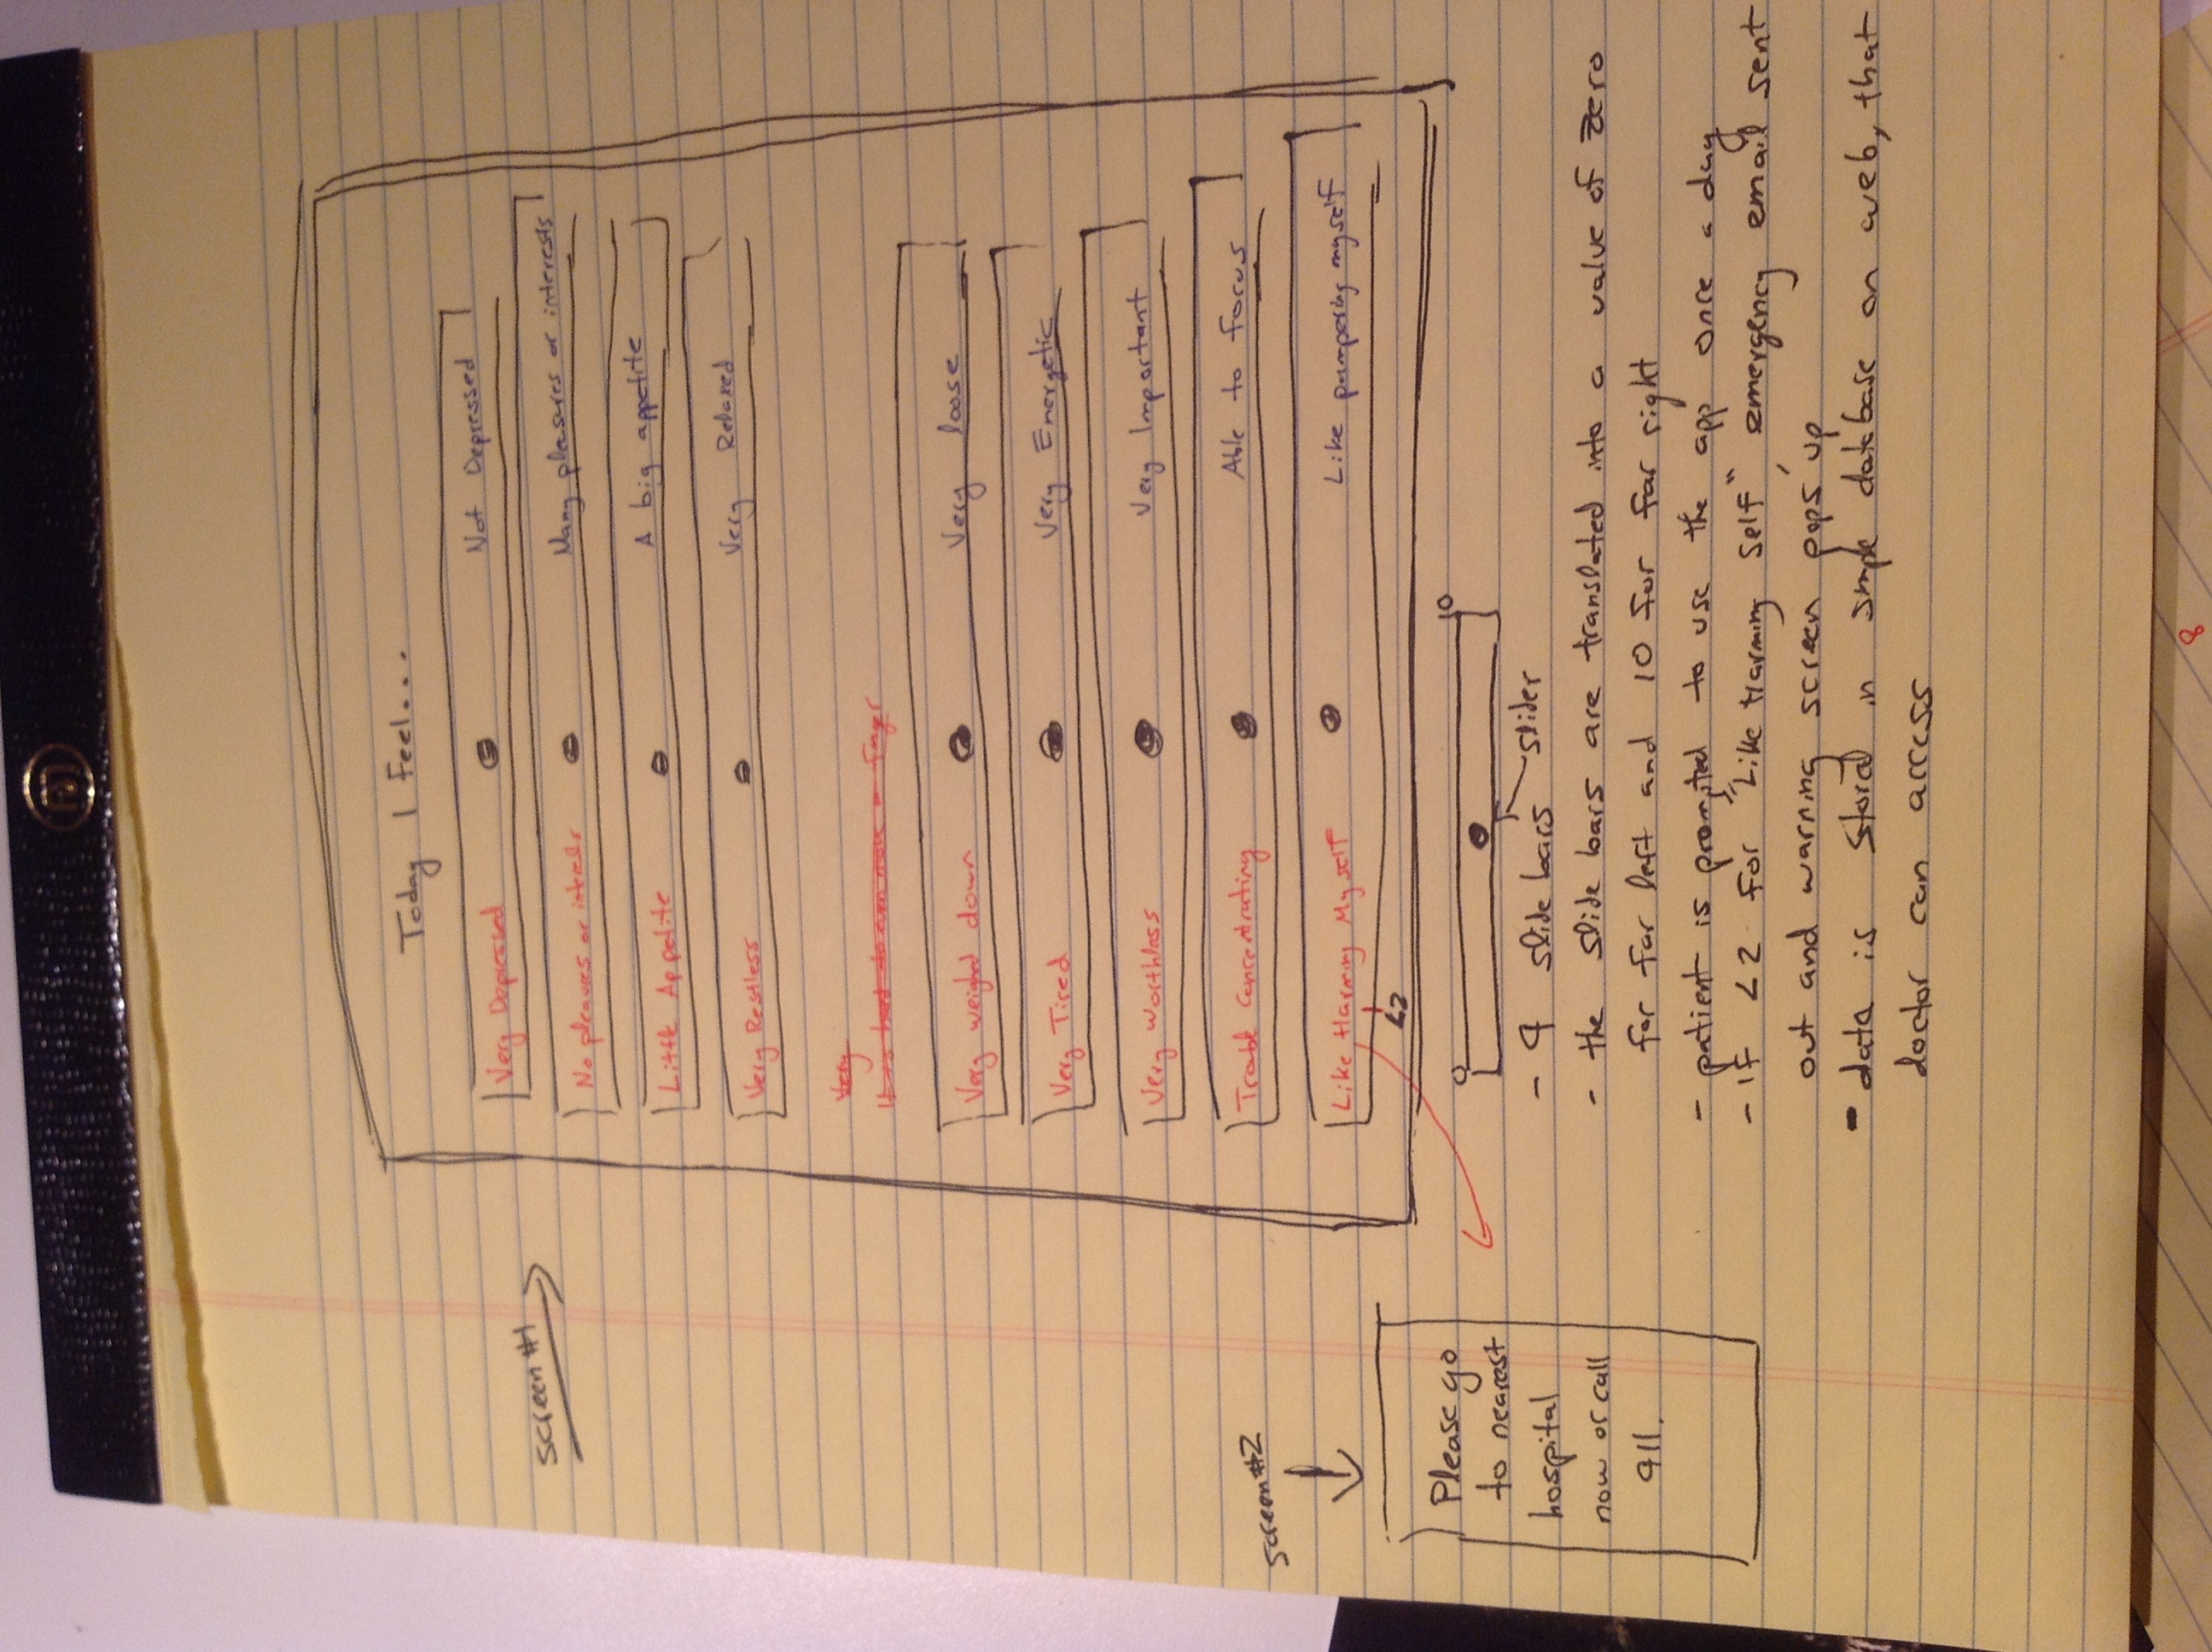 Today I Feel...
Very Depressed Not Depressed
Screen #1
No pleaures or interests Many pleasures or interests
Little Appetite A big appetite
Very Restless Very Relaxed
Very
It is hard to even move a finger
Very weighed down Very loose
Very Tired Very Energetic
Very Worthless Very Important
Trouble Concentrating Able to focus
Screen #2
Like Harming Myself Like pampering myself
<2
Please go
to nearest
hospital
now or call
911.
0 10
slider
- 9 slide bars
- the slide bars are translated into a value of zero
for far left and 10 for far right
- patient is prompted to use the app once a day
- If <2 for "Like Harming Self", emergency email sent
out and warning screen pops up
- data is stored in simple database on web, that
doctor can access
8